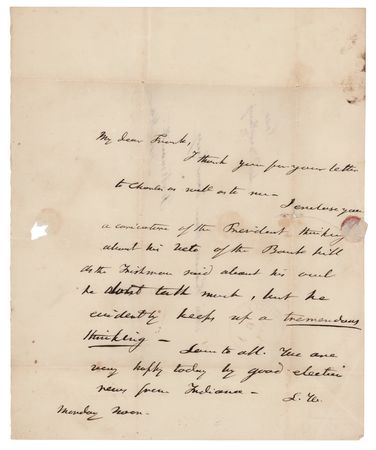 My dear Frank,
I thank you for your letter
to Charles as well as to me – 
I enclose you
a caricature of the President thinking
about his Veto of the Bank bill
as the Irishman said about his owl
he dont talk much, but he
evidently keeps up a tremendous
thinking –
Love to all. We are
very happy today by good election
news from Indiana –
Monday Noon.